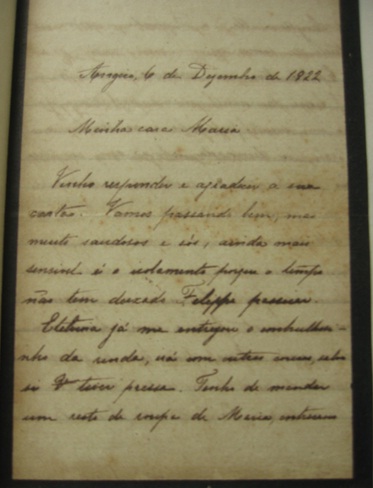 6 de Dezembro de 1822
Minha cara Maria
Venho responder e agradecer a sua
carta. Vamos passando bem, mas
muito saudosos e sós, ainda mais
sensivel é o isolamento porque o tempo
não tem deixado Felippe passear.
já me entregou o embrulhi-
nho da renda, irá com outras
si Vce tiver pressa. Tenho de mandar
um resto de roupa de Maria,